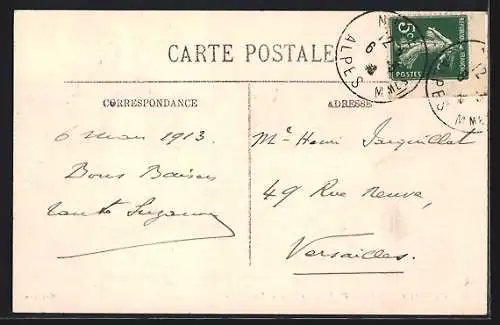 CARTE POSTALE
CORRESPONDANCE
ADRESSE
5c
POSTES
ALPES
ALPES
6 mars 1913.
Bons Baisers
tante Suzanne
Mr Henri
49 Rue Neuve,
Versailles.